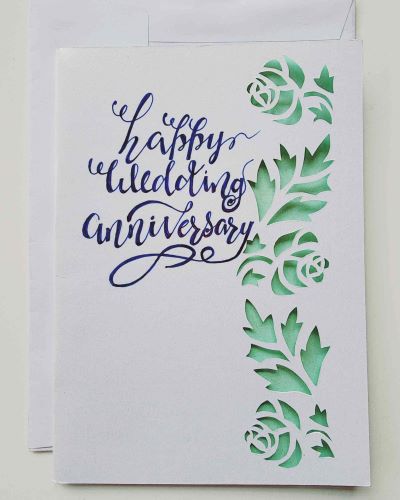 happy
wedding
anniversary